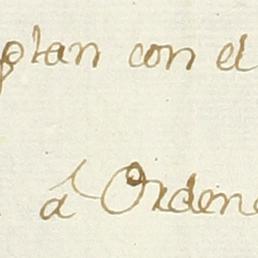 plan con el
á Ordene